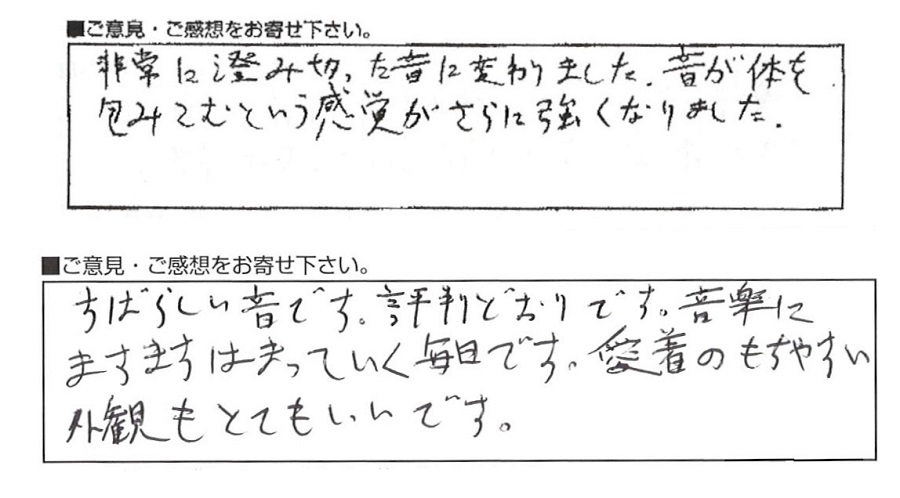 ■ご意見・ご感想をお寄せ下さい。
非常に澄み切った音に変わりました。音が体を
包みこむという感覚がさらに強くなりました。
■ご意見・ご感想をお寄せ下さい。
すばらしい音です。評判どおりです。音楽に
ますますはまっていく毎日です。愛着のもちやすい
外観もとてもいいです。